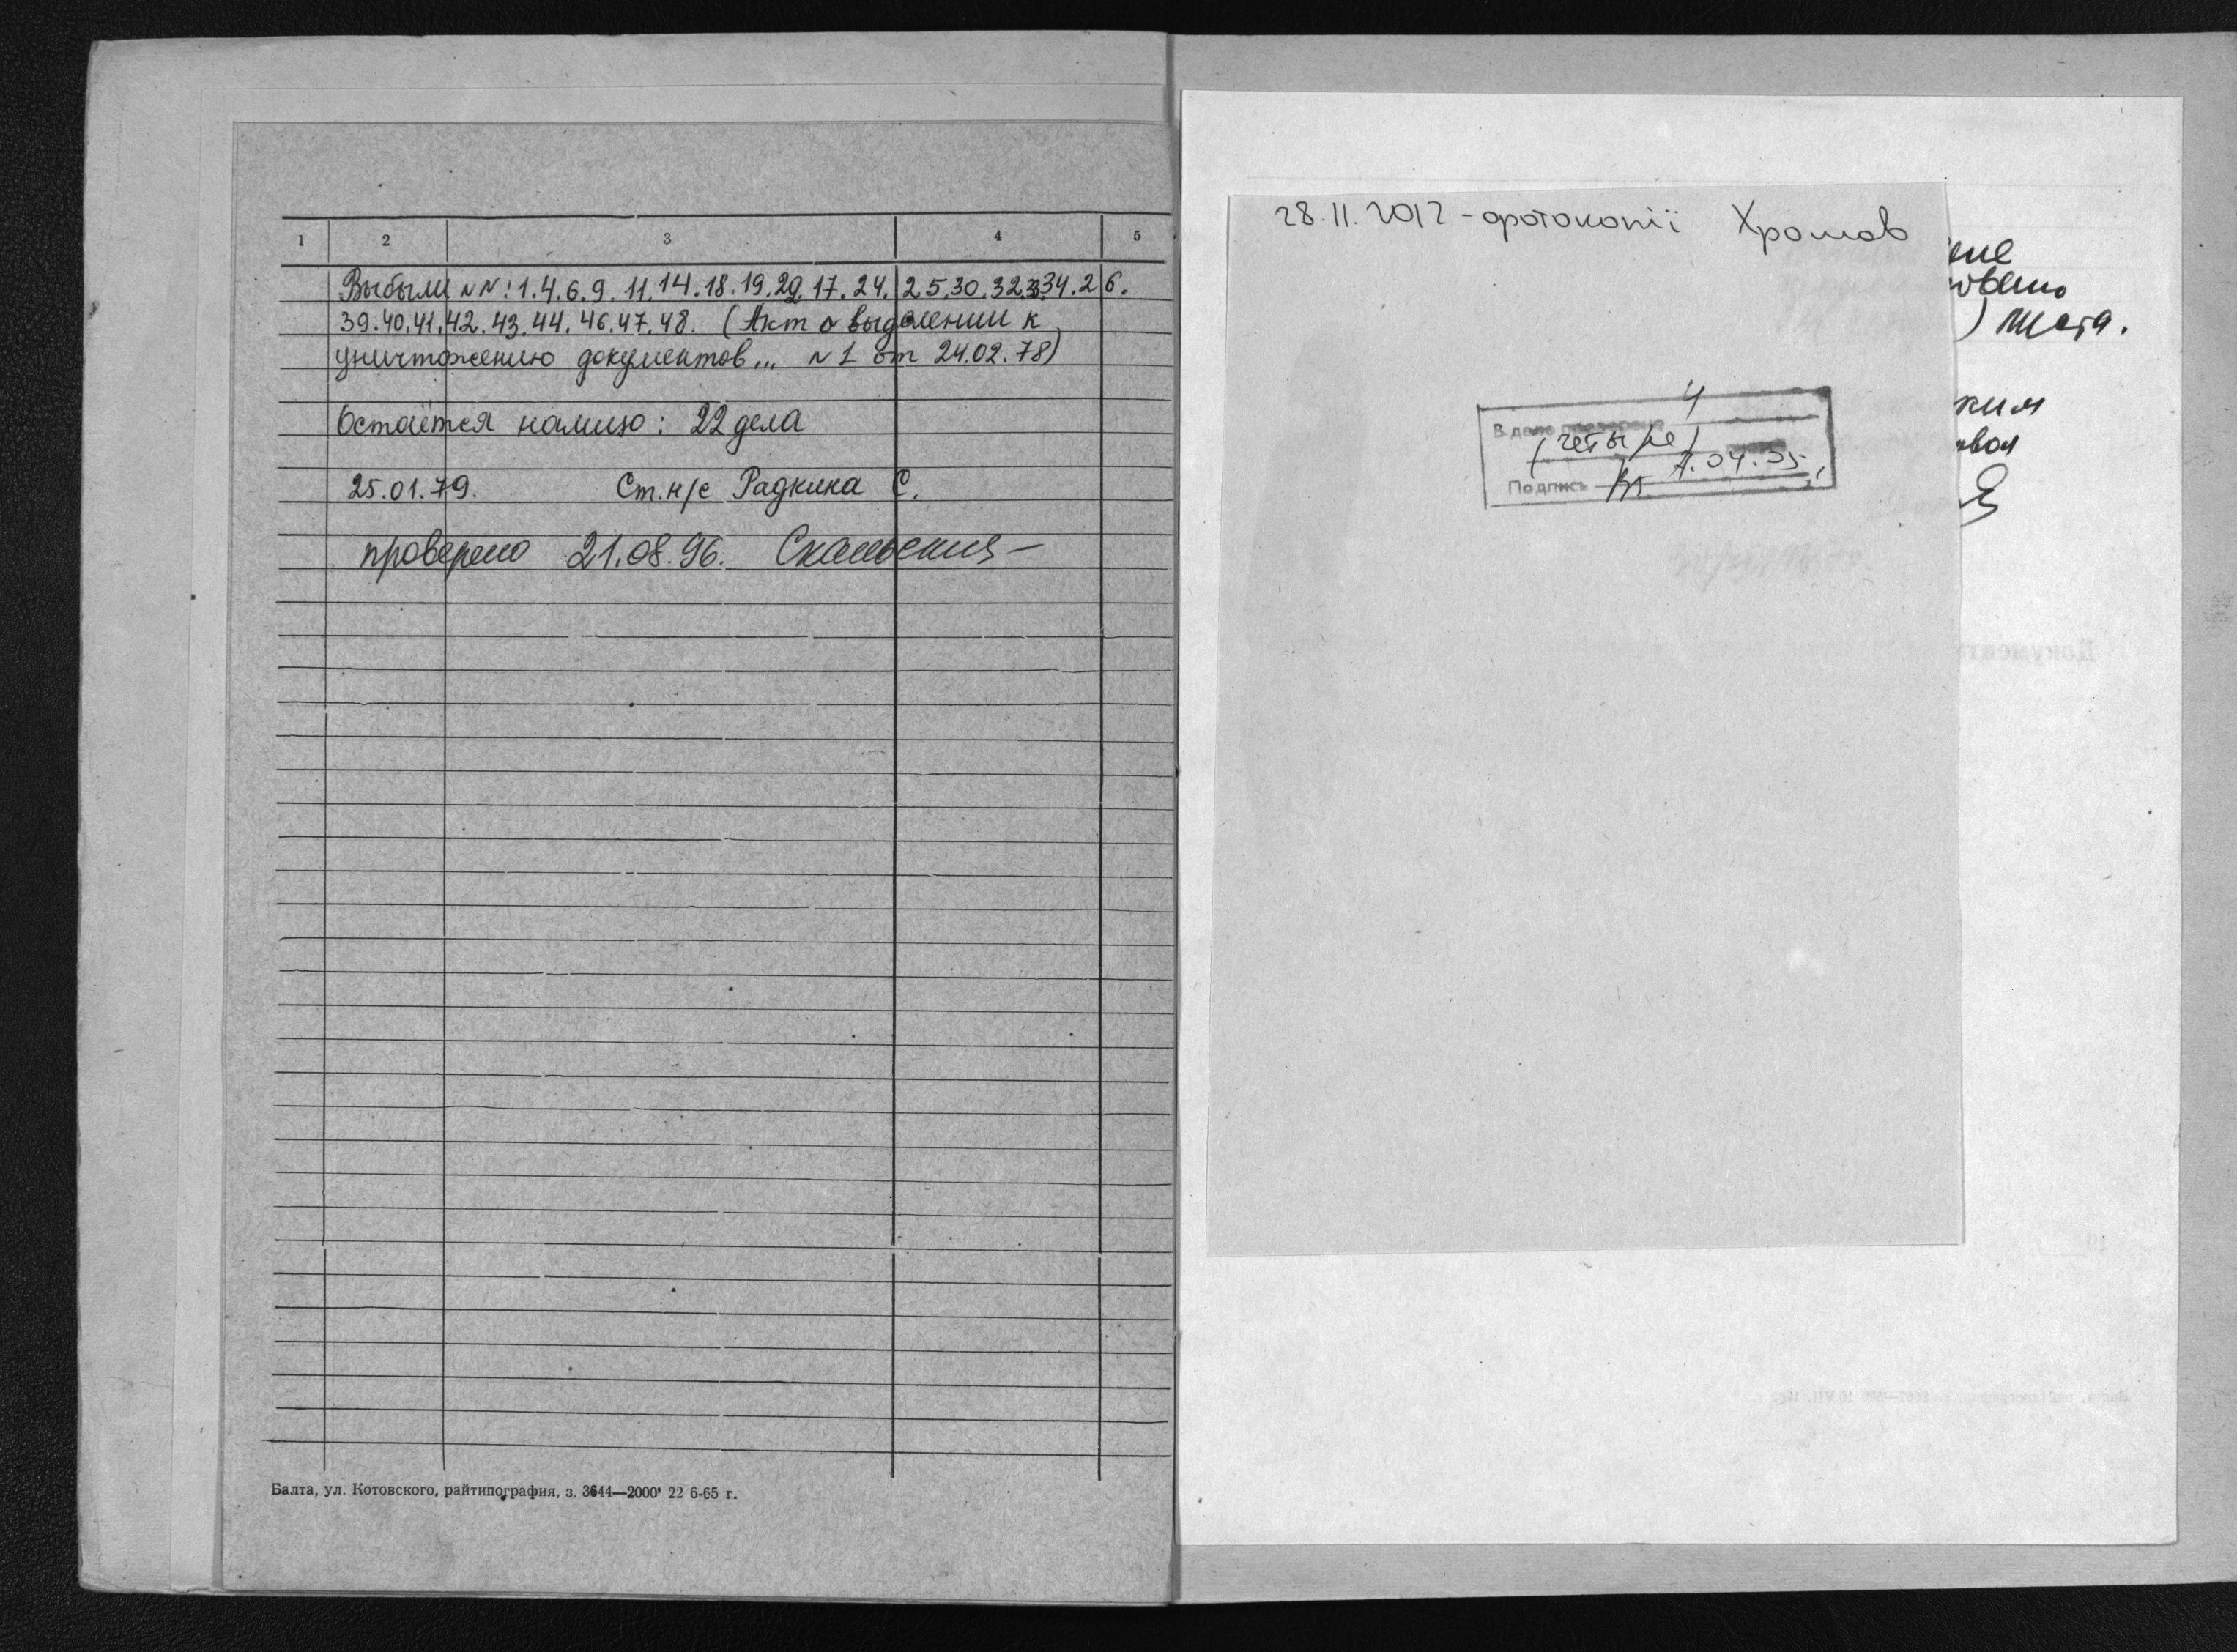 1 2 3 4 5
Выбыли NN: 1.4.6.9. 11.14.18.19.29.17.24. 25.30.32.33.34.26.
39.40.41.42.43.44.46.47.48. (Акт о выделении к
уничтожению документов... N1 от 24.02.78)
Остаётся налицо: 22 дела
25.01.79. Ст.н/с Радкина С.
проверено 21.08.96.
Балта, ул. Котовского, райтипография, з. 3644—2000 22 6-65 г.
28.11.2012 - фотокопії Хромов
4
В деле проверено
(четыре)
Подпись